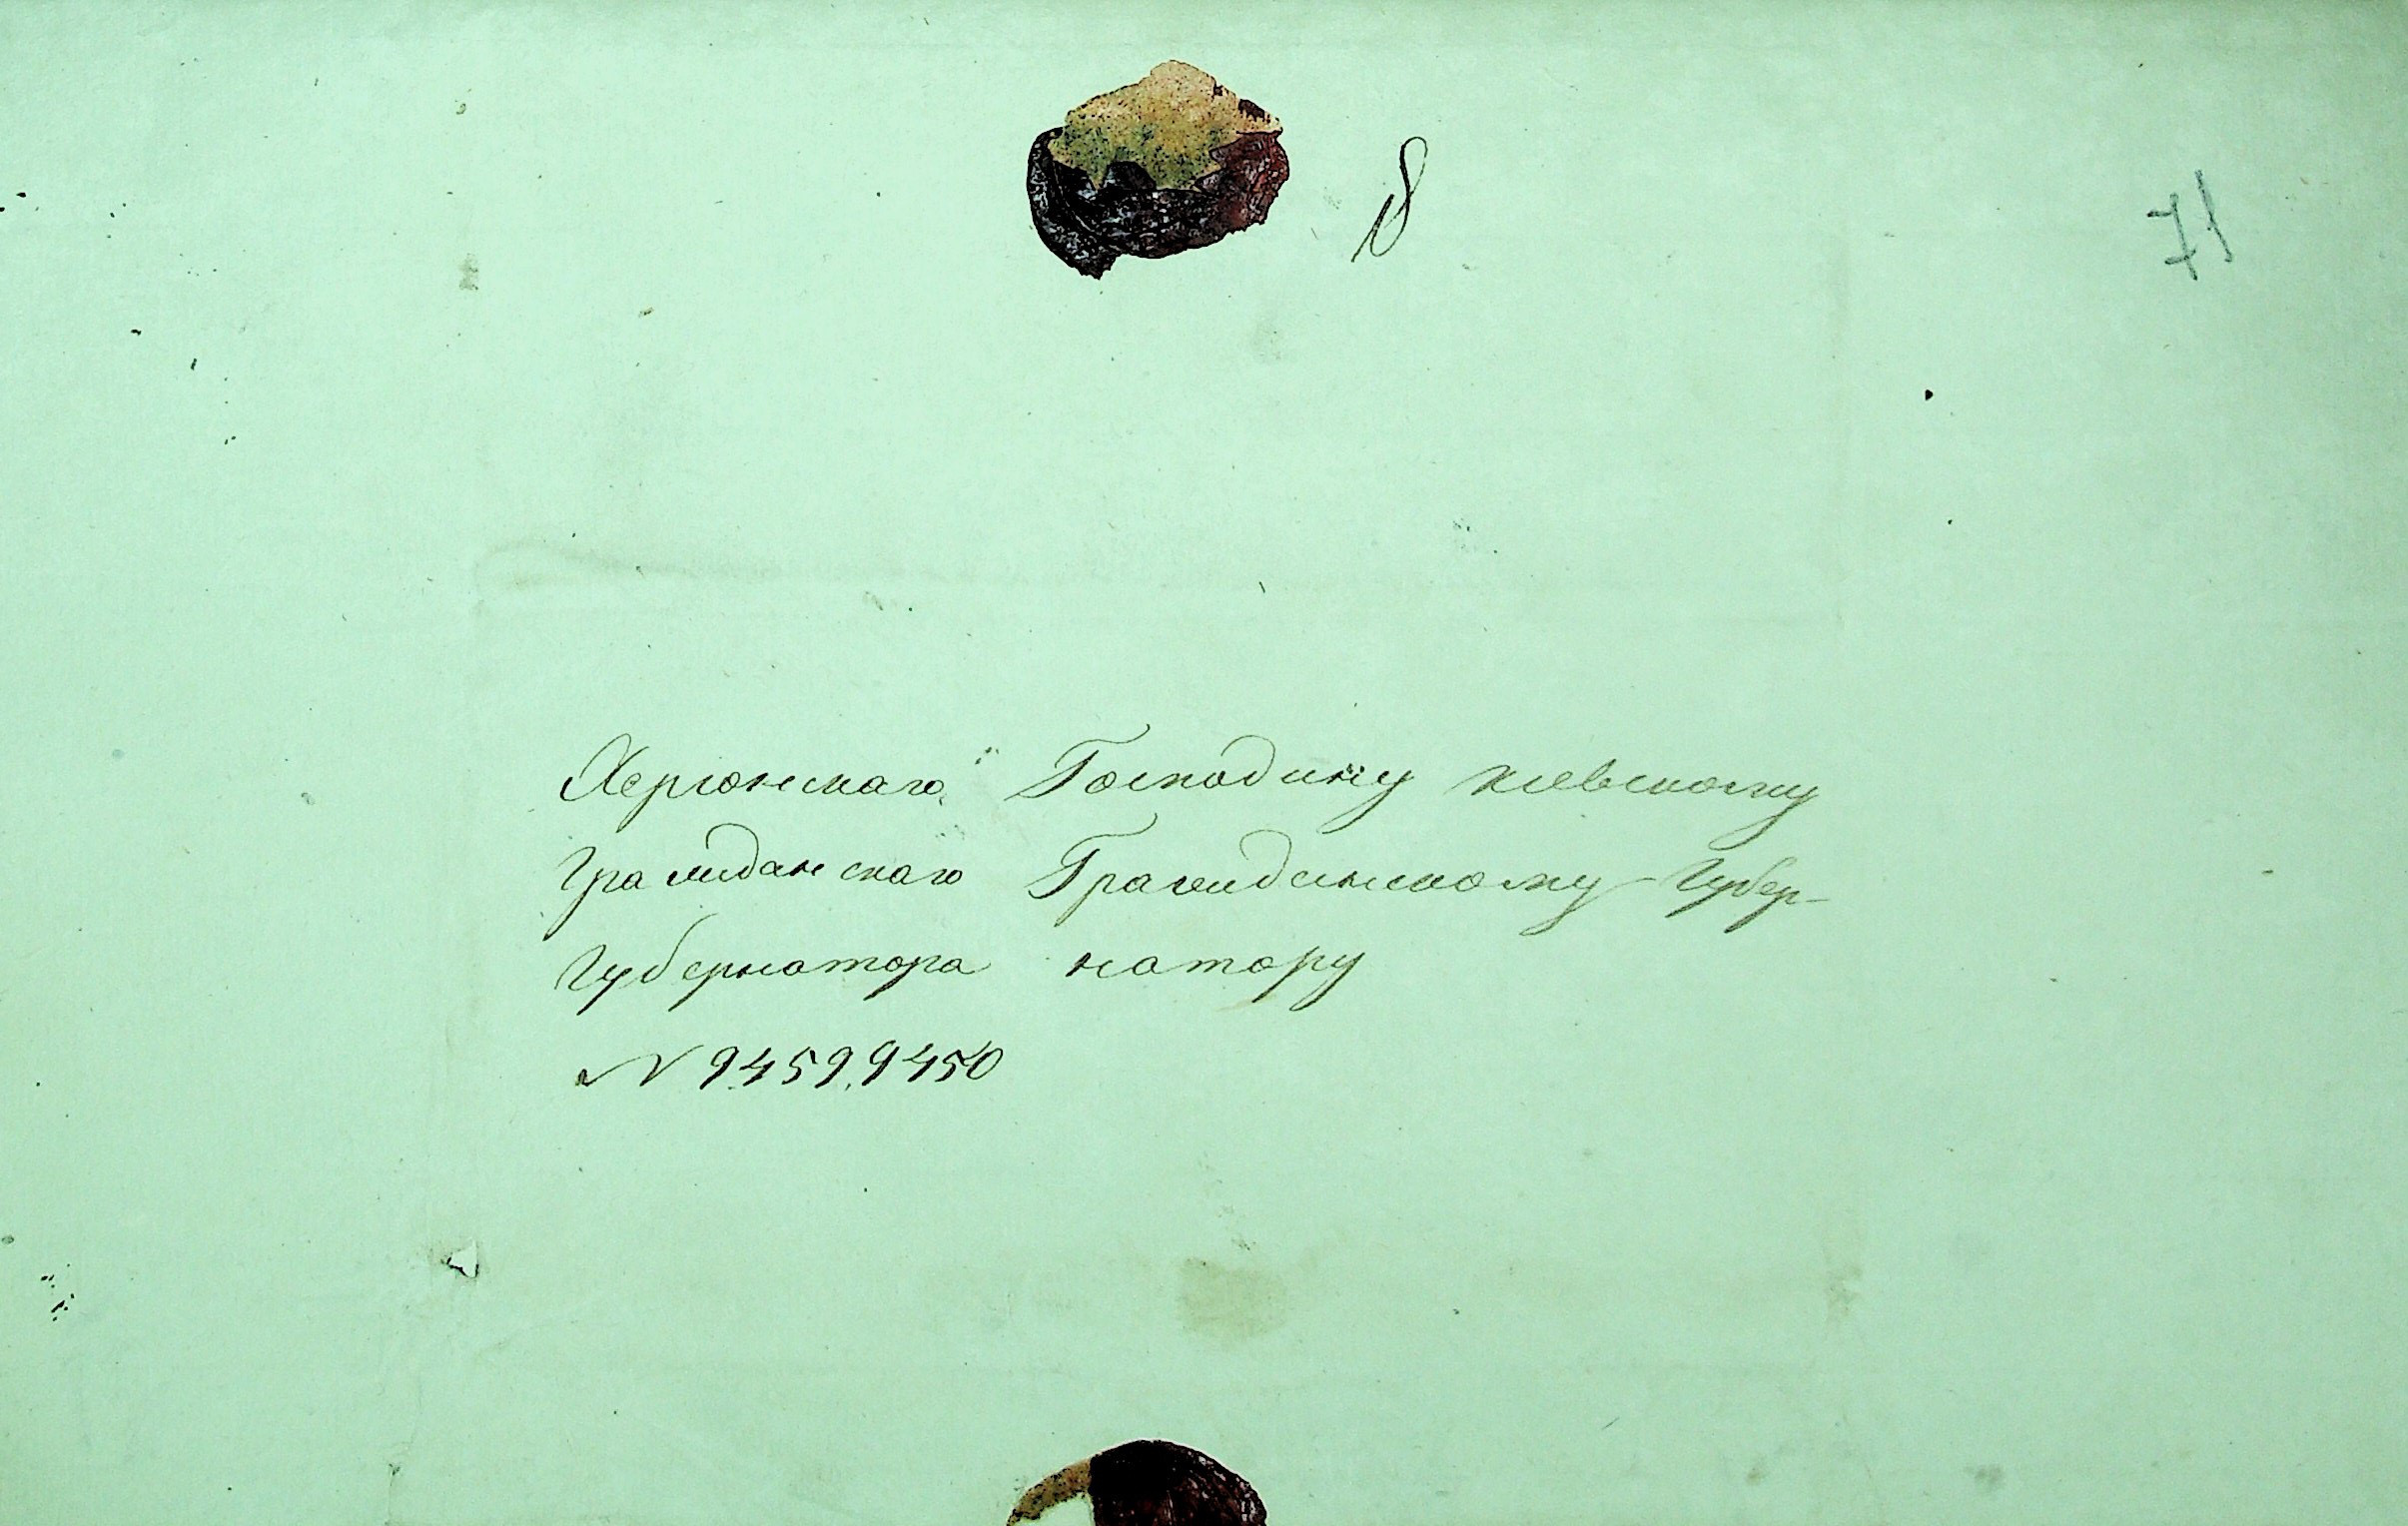 18
71
Херсонскаго
Гражданскаго
Губернатора
№ 9459, 9450
Господину киевскому
Гражданскому Губер-
натору